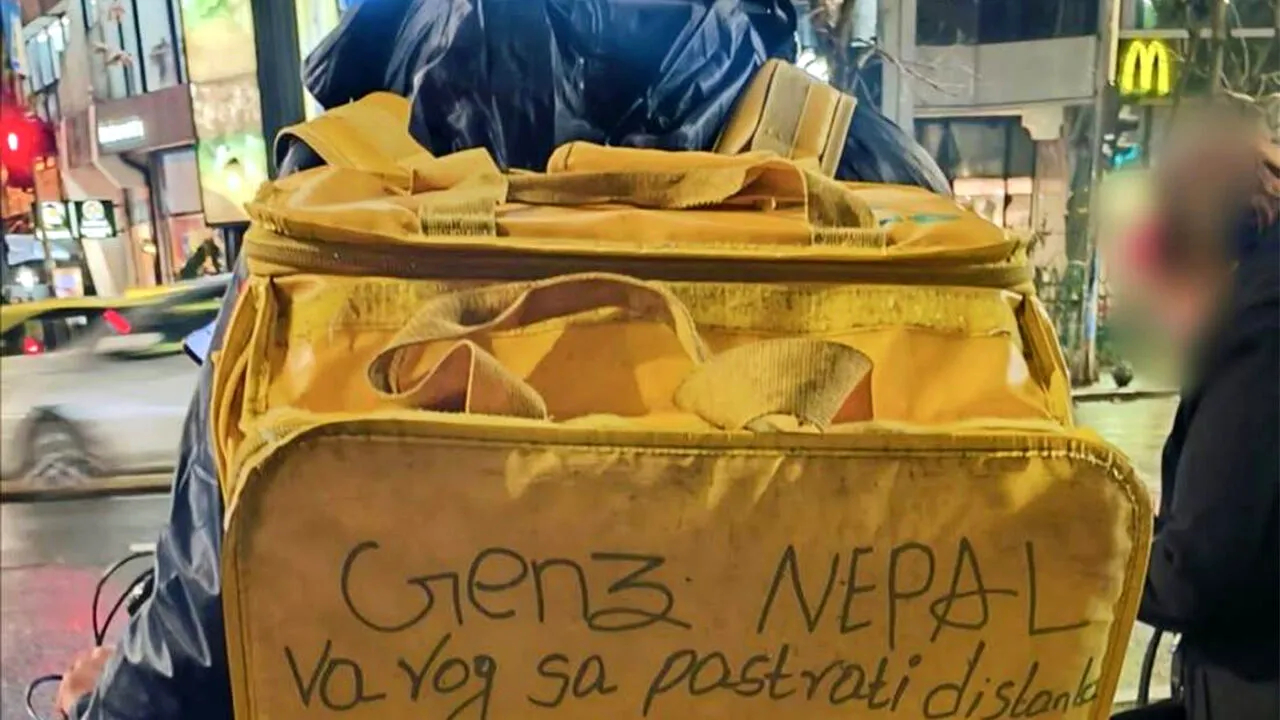 Genz NEPAL
Va rog sa pastrati distanta